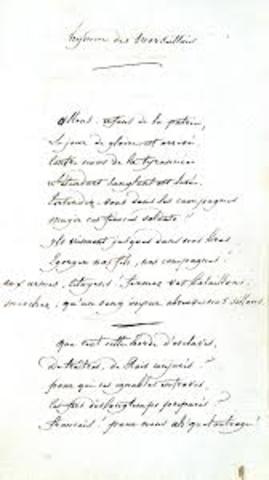 hymne des marseillais
allons enfans de la patrie,
Le jour de gloire est arrivé.
Contre nous de la tyrannie
L'étendart sanglant est levé.
Entendez vous dans les campagnes
mugir ces féroces soldats?
ils viennent jusques dans vos bras
Egorger vos fils, vos compagnes!
aux armes, citoyens! formez vos bataillons:
marchez, qu'un sang impur abreuve nos sillons.
que veut cette horde d'esclaves,
De traîtres, de Rois conjurés?
pour qui ces ignobles entraves,
Ces fers dès longtemps préparés?
français! pour nous ah quel outrage!